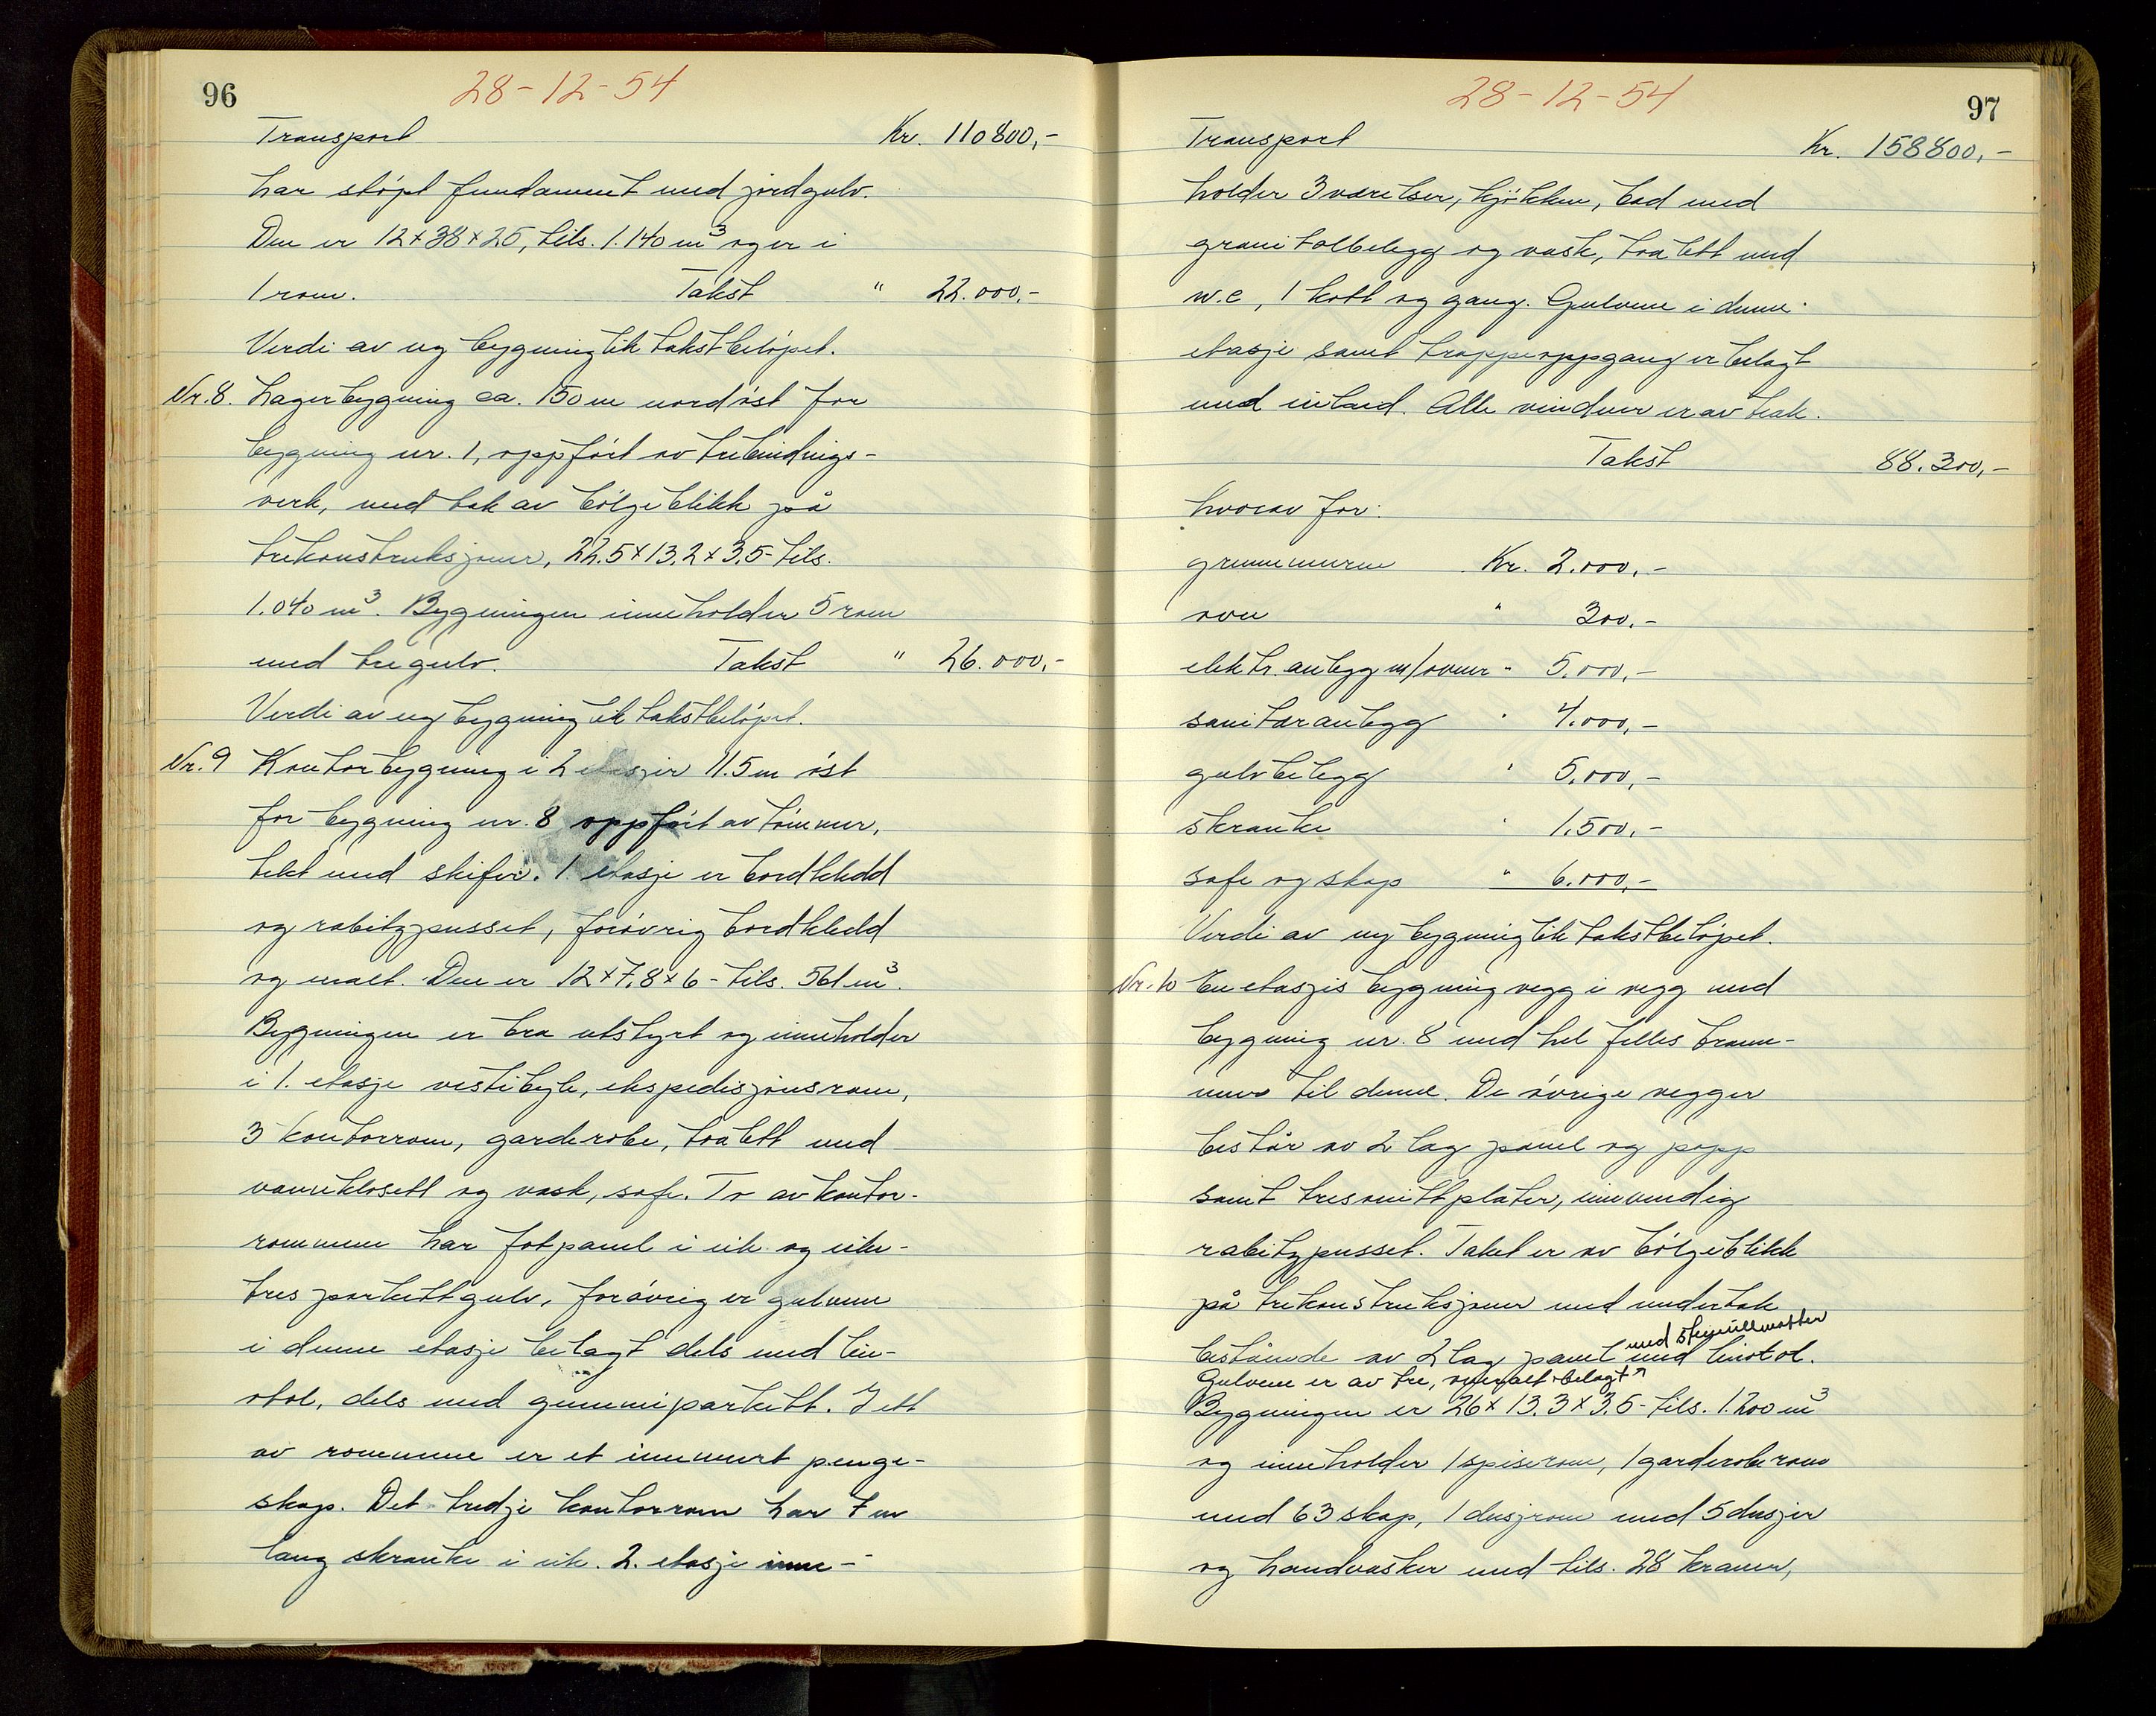 96
28-12-54
Transport Kr. 110800,-
har støpt fundament med jordgulv.
Den er 12×38×25, tils. 1.140 m³ og er i
1 rom. Takst " 22.000,-
Verdi av ny bygning lik takstbeløpet.
Nr. 8. Lagerbygning ca. 150 m nordøst for
bygning nr. 1, oppført av trebindings-
verk, med tak av bølgeblikk på
trekonstruksjoner, 22.5×13,2×3,5- tils.
1.040 m³. Bygningen inneholder 5 rom
med tregulv. Takst " 26.000,-
Verdi av ny bygning lik takstbeløpet.
Nr. 9 Kontorbygning i 2 etasjer 11.5 m øst
for bygning nr. 8 oppført av tømmer,
tekt med skifer. 1. etasje er bordkledd
og rabitzpusset, forøvrig bordkledd
og malt. Den er 12×7,8×6- tils. 561 m³.
Bygningen er bra utstyrt og inneholder
i 1. etasje vestibyle, ekspedisjonsrom,
3 kontorrom, garderobe, toalett med
vannklosett og vask, safe. To av kontor-
rommene har fotpanel i eik og eike-
tres parkettgulv, forøvrig er gulvene
i denne etasje belagt dels med lin-
otol, dels med gummiparkett. I ett
av rommene er et innmurt penge-
skap. Det tredje kontorrom har 7 m
lang skranke i eik. 2. etasje inne-
97
28-12-54
Transport Kr. 158800,-
holder 3 værelser, kjøkken, bad med
granitolbelegg og vask, toalett med
w.c, 1 kott og gang. Gulvene i denne
etasje samt trappeoppgang er belagt
med inlaid. Alle vinduer er av teak.
Takst 88.300,-
hvorav for:
grunnmuren Kr. 2.000,-
ovn " 300.-
elektr. anlegg m/ovner " 5.000,-
sanitæranlegg " 4.000,-
gulvbelegg " 5.000,-
skranke " 1.500,-
safe og skap " 6.000,-
Verdi av ny bygning lik takstbeløpet.
Nr. 10 En etasjes bygning vegg i vegg med
bygning nr. 8 med hel felles brann-
mur til denne. De øvrige vegger
består av 2 lag panel og papp
samt tresonittplater, innvendig
rabitzpusset. Taket er av bølgeblikk
på trekonstruksjoner med undertak
med steinullmatter
bestående av 2 lag panel med linotol.
Gulvene er av tre, overalt belagt
Bygningen er 26×13.3×3.5- tils. 1.200 m³
og inneholder 1 spiserom, 1 garderoberom
med 63 skap, 1 dusjrom med 5 dusjer
og håndvasker med tils. 28 kraner,